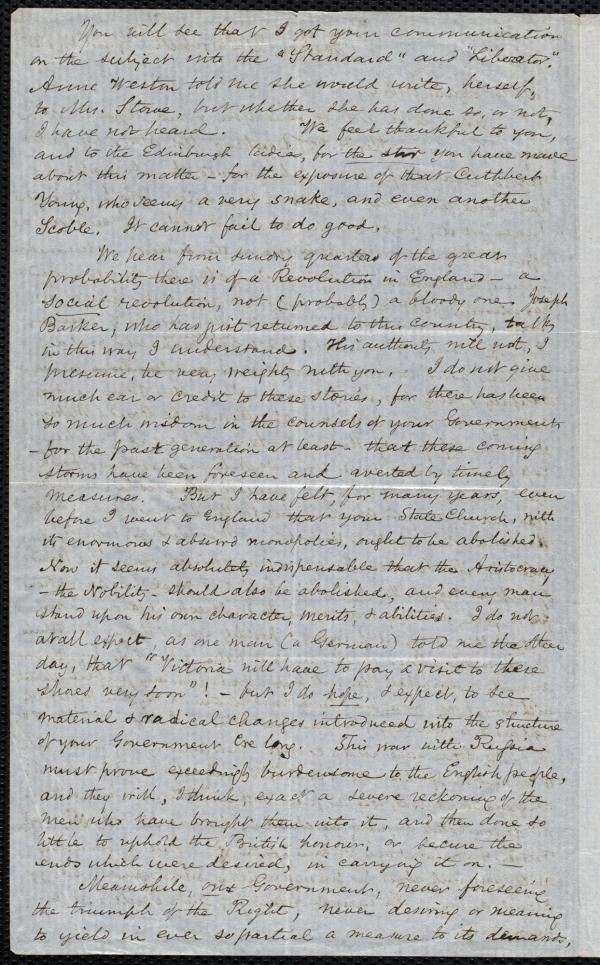 You will see that I got your communication
on the subject into the "Standard" and "Liberator."
Anne Weston told me she would write, herself,
to Mrs. Stowe, but whether she has done so, or not,
I have not heard. We feel thankful to you,
and to the Edinburgh ladies, for the stir you have made
about this matter – for the exposure of that Cuthbert
Young, who seems a very snake, and even another
Scoble. It cannot fail to do good.
We hear from sundry quarters of the great
probability there is of a Revolution in England – a
social revolution, not (probably) a bloody one. Joseph
Barker, who has just returned to this country, talks
in this way I understand. His authority will not, I
presume, be very weighty with you. I do not give
much ear or credit to these stories, for there has been
so much wisdom in the counsels of your Government
– for the past generation at least – that these coming
storms have been foreseen and averted by timely
measures. But I have felt, for many years, even
before I went to England that your State Church, with
its enormous & absurd monopolies, ought to be abolished.
Now it seems absolutely indispensable that the Aristocracy
– the Nobility – should also be abolished, and every man
stand upon his own character, merits, & abilities. I do not
at all expect, as one man (a German) told me the other
day, that "Victoria will have to pay a visit to these
shores very soon"! – but I do hope, & expect, to see
material & radical changes introduced into the structure
of your Government ere long. This war with Russia
must prove exceedingly burdensome to the English people,
and they will, I think, exact a severe reckoning of the
men who have brought them into it, and then done so
little to uphold the British honour, or secure the
ends which were desired, in carrying it on. –
Meanwhile, our Government, never foreseeing
the triumph of the Right, never desiring or meaning
to yield in ever so partial a measure to its demands,